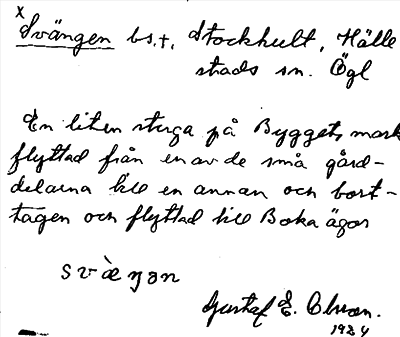 x
Svängen bs.t, Stockhult, Hälle
stads sn. Ögl
En liten stuga på Byggets mark
flyttad från en av de små gård-
delarna till en annan och bort-
tagen och flyttad till Boka ägor
svàeŋən
Gustaf E. Olsson.
1934